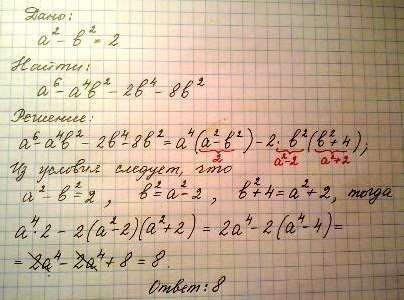 Дано:
a² - b² = 2
Найти:
a⁶ - a⁴b² - 2b⁴ - 8b²
Решение:
a⁶ - a⁴b² - 2b⁴ - 8b² = a⁴(a² - b²) - 2·b²(b² + 4);
2 a²-2 a²+2
Из условия следует, что
a² - b² = 2, b² = a² - 2, b² + 4 = a² + 2, тогда
a⁴·2 - 2(a² - 2)(a² + 2) = 2a⁴ - 2(a⁴ - 4) =
= 2a⁴ - 2a⁴ + 8 = 8.
Ответ: 8